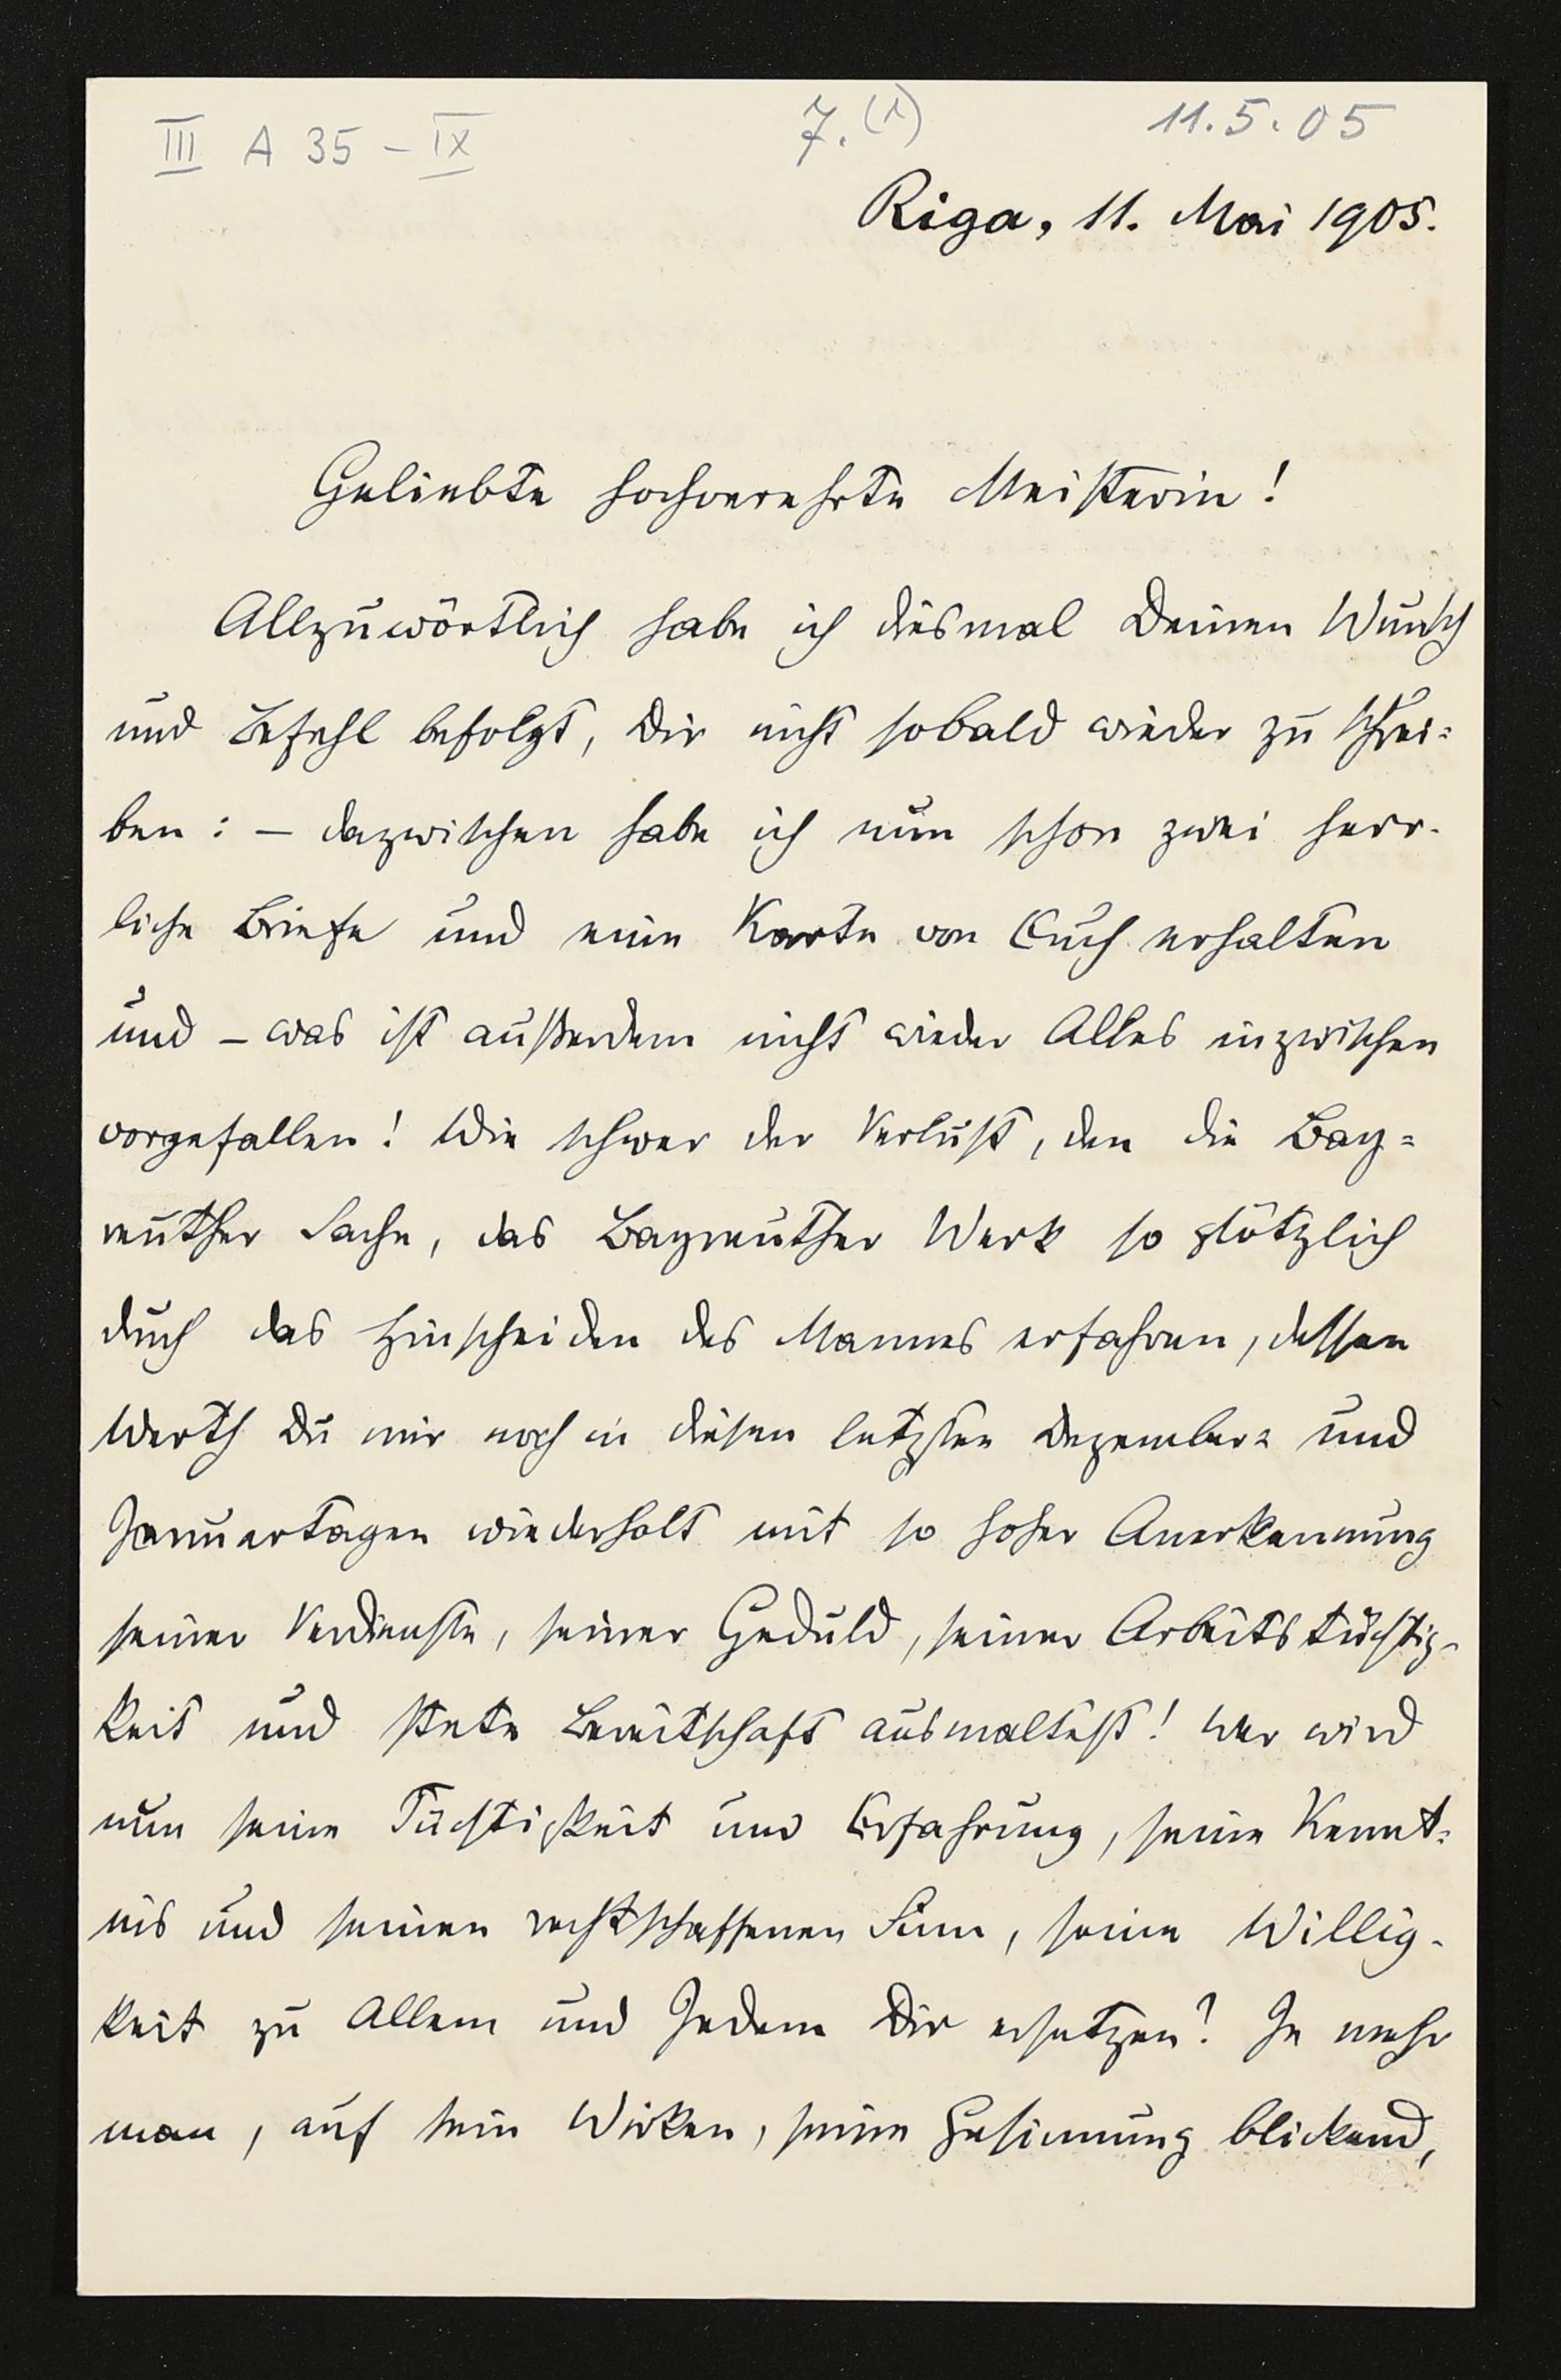 III A 35 - IX
7. (1)
11.5.05
Riga, 11. Mai 1905.
Geliebte hochverehrte Meisterin!
Allzuwörtlich habe ich diesmal Deinen Wunsch
und Befehl befolgt, Dir nicht sobald wieder zu schrei=
ben: – dazwischen habe ich nun schon zwei herr-
liche Briefe und eine Karte von Euch erhalten
und – was ist außerdem nicht wieder Alles inzwischen
vorgefallen! Wie schwer der Verlust, den die Bay=
reuther Sache, das Bayreuther Werk so plötzlich
durch das Hinscheiden des Mannes erfahren, dessen
Werth Du mir noch in diesen letzten Dezember= und
Januartagen wiederholt mit so hoher Anerkennung
seiner Verdienste, seiner Geduld, seiner Arbeitstüchtig-
keit und stete Bereitschaft ausmaltest! Wer wird
nun seine Tüchtigkeit und Erfahrung, seine Kennt=
nis und seinen rechtschaffenen Sinn, seine Willig-
keit zu Allem und Jedem Dir ersetzen? Je mehr
man, auf sein Wirken, seine Gesinnung blickend,